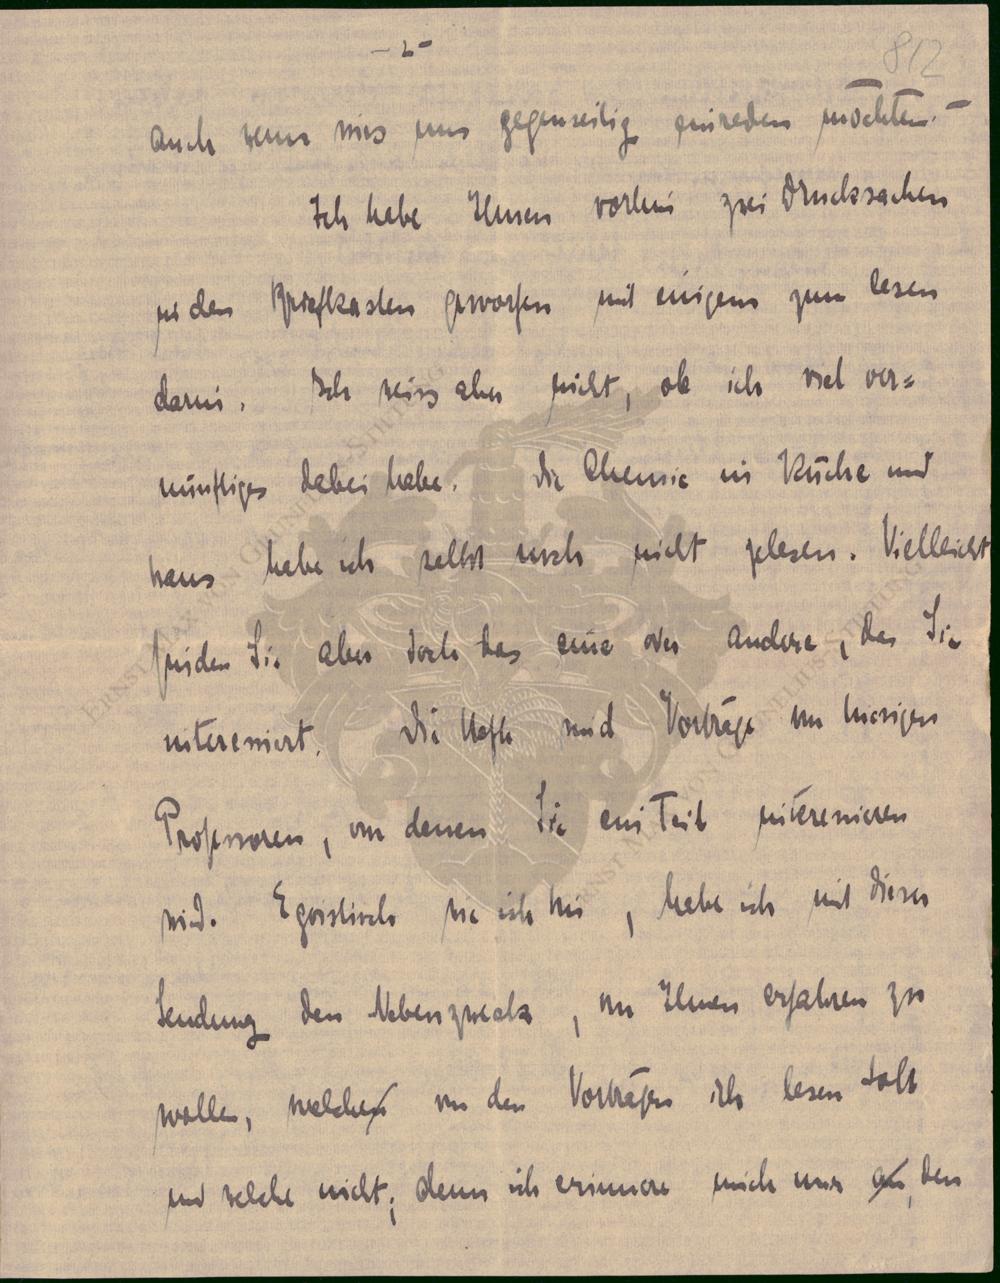 - 2 -
812
auch wenn wirs uns gegenseitig einreden möchten. -
Ich habe Ihnen vorhin zwei Drucksachen
in den Briefkasten geworfen mit einigem zum lesen
darin. Ich weiss aber nicht, ob ich viel ver=
nünftiges dabei habe. Die Chemie in Küche und
Haus habe ich selbst noch nicht gelesen. Vielleicht
finden Sie aber doch das eine oder andere, das Sie
interessiert. Die Hefte sind Vorträge von hiesigen
Professoren, von denen Sie ein Teil interessieren
wird. Egoistisch wie ich bin, habe ich mit dieser
Sendung den Nebenzweck, von Ihnen erfahren zu
wollen, welchen von den Vorträgen ich lesen soll
und welche nicht; denn ich erinnere mich nur an den
ERNST MAX VON GRUNELIUS-STIFTUNG
ERNST MAX VON GRUNELIUS-STIFTUNG